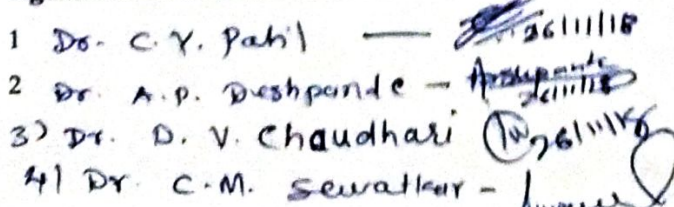 1 Dr. C. Y. Patil — 26/11/18
2 Dr. A. P. Deshpande - 26/11/18
3) Dr. D. V. Chaudhari 26/11/18
4) Dr. C. M. Sewatkar -